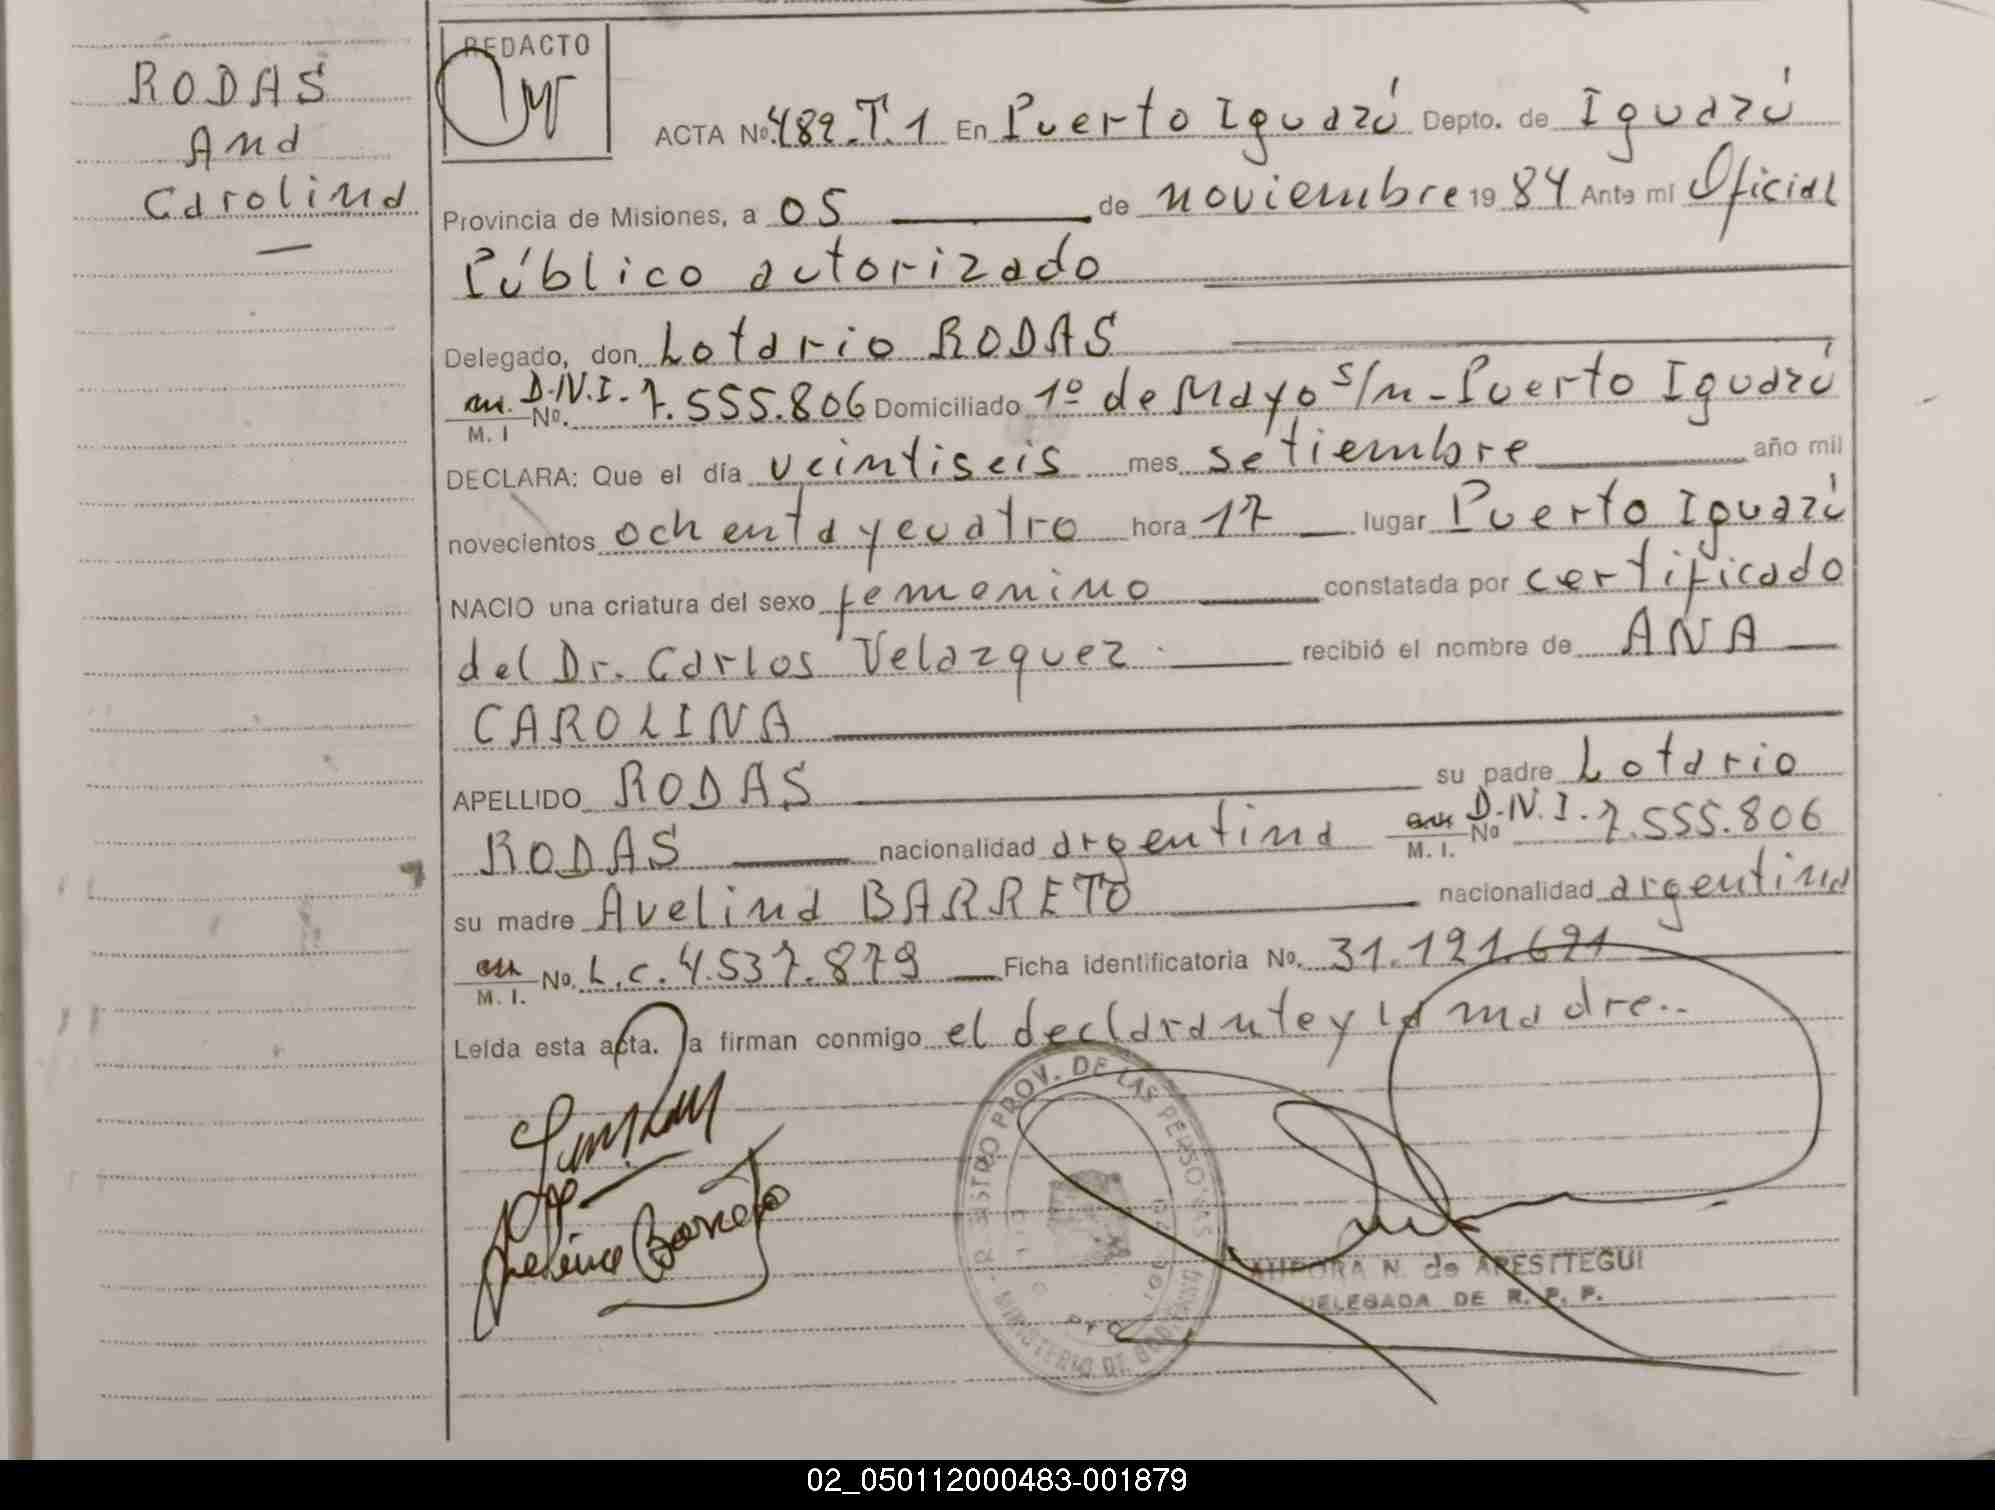 RODAS
Ana
Carolina
REDACTO
ACTA Nº 489.T.1 En Puerto Iguazú Depto. de Iguazú
Provincia de Misiones, a 05 de noviembre 19 84 Ante mí Oficial
Público autorizado
Delegado, don Lotario RODAS
M. I Nº. D.N.I. 7.555.806 Domiciliado 1º de Mayo s/n - Puerto Iguazú
DECLARA: Que el día veintiseis mes setiembre año mil
novecientos ochenta y cuatro hora 17 lugar Puerto Iguazú
NACIO una criatura del sexo femenino constatada por certificado
del Dr. Carlos Velazquez recibió el nombre de ANA
CAROLINA
APELLIDO RODAS su padre Lotario
RODAS nacionalidad argentina M. I. Nº D.N.I. 7.555.806
su madre Avelina BARRETO nacionalidad argentina
M. I. Nº. L.C. 4.537.879 Ficha identificatoria Nº. 31.191.691
Leída esta acta. la firman conmigo el declarante y la madre..
Barreto
REGISTRO PROV. DE LAS PERSONAS
MINISTERIO DE GOBIERNO
AURORA N. de ARESTTEGUI
DELEGADA DE R. P. P.
02_050112000483-001879